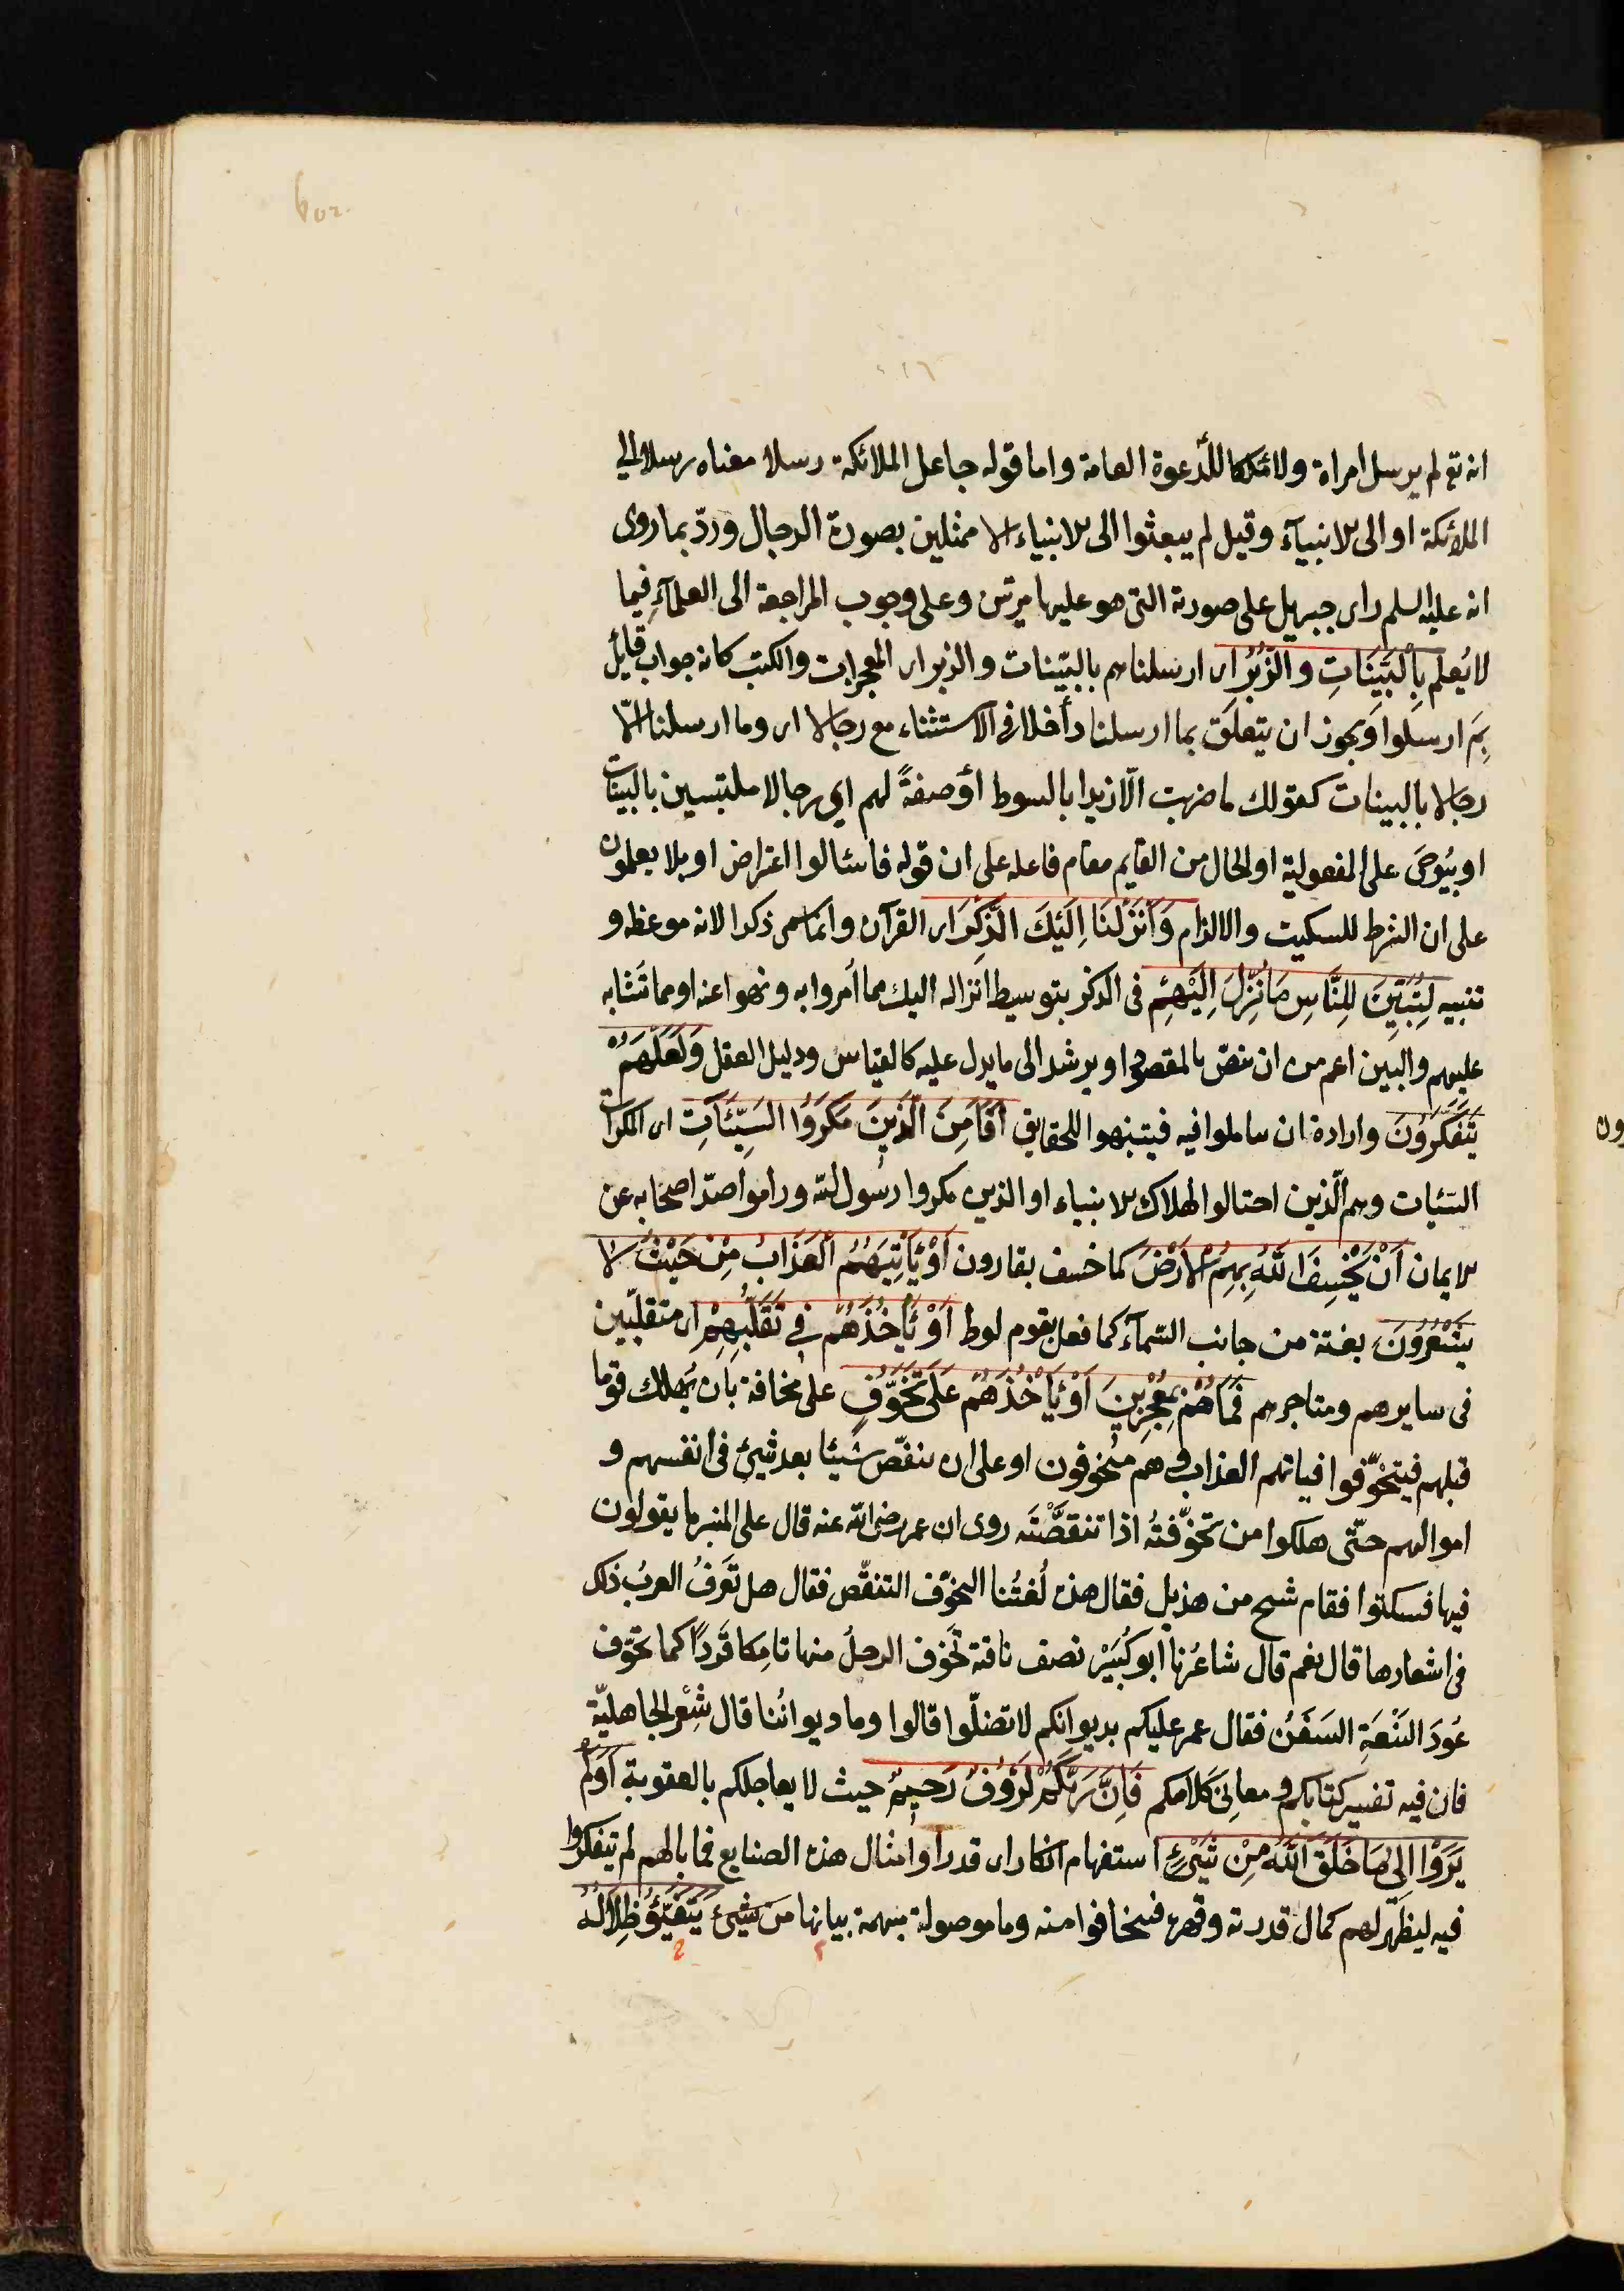 انه تع لم يرسل امراة ولا مَلَكا للدّعوة العامة واما قوله جاعل الملائكة رسلا معناه رسلا الى
الملائكة او الى الانبيآء وقيل لم يبعثوا الى الانبياء الا ممثلين بصورة الرجال وردّ بما روى
انه عليه السلم راى جبريل على صورته التى هو عليها مرتين وعلى وجوب المراجعة الى العلمآء فيما
لا يُعلم بِالْبَيِّنَاتِ وَالزُّبُرِ اى ارسلناهم بالبيّنات والزبر اى المعجزات والكتب كانه جواب قايل
بِمَ ارسلوا ويجوز ان يتعلق بما ارسلنا داخلا فى الاستثناء مع رجالا اى وما ارسلنا الّا
رجالا بالبينات كقولك ما ضربت الّا زيدا بالسوط أو صفةً لهم اي رجالا ملتبسين بالبينات
او بيُوحَى على المفعولية او الحال من القايم مقام فاعله على ان قوله فاسئالوا اعتراض او بلا يعلمون
على ان الشرط للسكيت والالزام وَأَنْزَلْنَا اِلَيْكَ الذِّكْرَ اى القرآن وانما سمى ذكرا لانه موعظة و
تنبيه لِتُبَيِّنَ لِلنَّاسِ مَا نُزِّلَ اِلَيْهِمْ فى الذكر بتوسيط انزاله اليك مما اُمروا به ونهوا عنه او مما تشابه
عليهم والبين اعم من ان ينص بالمقصود او يرشد الى ما يدل عليه كالقياس ودليل العقل وَلَعَلَّهُمْ
يَتَفَكَّرُونَ وارادة ان ساملوا فيه فيتنبهوا للحقايق اَفَاَمِنَ الَّذِينَ مَكَرُوا السَيِّئَاتِ اى المكرات
السّئيات وهم الّذين احتالوا لهلاك الانبياء او الذين مكروا رسول الله وراموا صدّ اصحابه عن
الايمان اَنْ يَخْسِفَ اللّهُ بِهِمُ الْاَرْضَ كما خسف بقارون اَوْ يَأْتِيَهُمُ الْعَذَابُ مِنْ حَيْثُ لَا
يَشْعُرُونَ بغتة من جانب السّمآء كما فعل بقوم لوط اَوْ يَأْخُذَهُمْ فِي تَقَلُّبِهِمْ اى متقلّبين
فى سايرهم ومتاجرهم فَمَا هُمْ بِمُعْجِزِينَ اَوْ يَأْخُذَهُمْ عَلَى تَخَوُّفٍ على مخافة بان يُهلك قوما
قبلهم فيتخوّفوا فياتيهم العذاب وهم متخوفون او على ان ينقّص شيئا بعد شيئ فى انفسهم و
اموالهم حتّى هلكوا من تخوّفتُه اذا تنقصَّتَه روى ان عمر رضى الله عنه قال على المنبر ما يقولون
فيها فسكتوا فقام شيح من هذيل فقال هذه لُغتُنا التخوّف التنقّص فقال هل تَعَرفُ العربُ ذلك
فى اشعارها قال نعم قال شاعُرنا ابو كُبَيْر نصف ناقته تَخَوَّف الرحلُ منها تامِكا قَرِدًا كما تخوّف
عُودَ النَّبْعَةِ السَفَنُ فقال عمر عليكم بديوانكم لا تضلّوا قالوا وما ديواننا قال شِعْر الجاهليّة
فان فيه تفسير كتابكم و معانىَ كَلَامكم فَاِنَّ رَبَّكُمْ لَرَؤُوفٌ رَحيِمٌ حيث لا يعاجلكم بالعقوبة اَوَلَمْ
يَرَوْا اِلَى مَا خَلَقَ اللّهُ مِنْ شَيْئٍ استفهام انكار اى قد راوا امثال هذه الصنايع فما بالهم لم يتفكروا
فيه ليظهر لهم كمال قدرته وقهره فيخافوا منه وما موصولة مبهمة بيانها من شيئ يَتَفَيَّؤُ ظِلَالُهُ